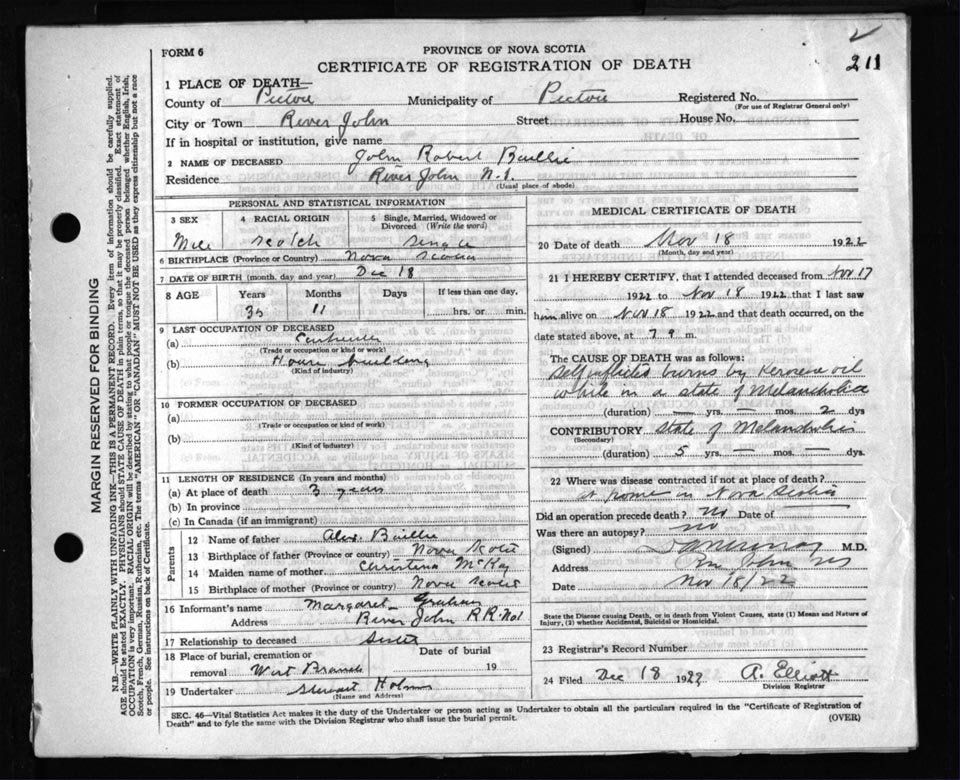 211
FORM 6
PROVINCE OF NOVA SCOTIA
CERTIFICATE OF REGISTRATION OF DEATH
1 PLACE OF DEATH—
County of Pictou Municipality of Pictou Registered No.
(For use of Registrar General only)
City or Town River John Street House No.
If in hospital or institution, give name
2 NAME OF DECEASED John Robert Baillie
Residence River John N.S.
(Usual place of abode)
PERSONAL AND STATISTICAL INFORMATION
3 SEX 4 RACIAL ORIGIN 5 Single, Married, Widowed or Divorced (Write the word)
Male Scotch Single
6 BIRTHPLACE (Province or Country) Nova Scotia
7 DATE OF BIRTH (month, day and year) Dec 18
8 AGE Years Months Days If less than one day,
11 hrs. or min.
9 LAST OCCUPATION OF DECEASED
(a) Carpenter
(Trade or occupation or kind or work)
(b) House building
(Kind of industry)
10 FORMER OCCUPATION OF DECEASED
(a)
(Trade or occupation or kind of work)
(b)
(Kind of industry)
11 LENGTH OF RESIDENCE (In years and months)
(a) At place of death 3 years
(b) In province
(c) In Canada (if an immigrant)
Parents
12 Name of father Alex. Baillie
13 Birthplace of father (Province or country) Nova Scotia
14 Maiden name of mother Christina McKay
15 Birthplace of mother (Province or country) Nova Scotia
16 Informant's name Margaret Graham
Address River John R.R. No1
17 Relationship to deceased Sister
18 Place of burial, cremation or removal West Branch
Date of burial 19
19 Undertaker Stewart Holms
(Name and Address)
MEDICAL CERTIFICATE OF DEATH
20 Date of death Nov 18 1922
(Month, day and year)
21 I HEREBY CERTIFY, that I attended deceased from Nov 17
1922 to Nov 18 1922 that I last saw
him alive on Nov 18 1922 and that death occurred, on
date stated above, at 7 m.
The CAUSE OF DEATH was as follows:
Self inflicted burns by Kerosene oil
while in a state of Melancholia
(duration) — yrs. — mos. 2 dys
CONTRIBUTORY State of Melancholia
(Secondary)
(duration) 5 yrs. — mos. — dys.
22 Where was disease contracted if not at place of death?
at home in Nova Scotia
Did an operation precede death? no Date of
Was there an autopsy? no
(Signed) M.D.
Address River John NS
Date Nov 18/22
State the Disease causing Death, or in death from Violent Causes, state (1) Means and Nature of
Injury, (2) whether Accidental, Suicidal or Homicidal.
23 Registrar's Record Number
24 Filed Dec 18 1922 A. Elliott
Division Registrar
SEC. 46—Vital Statistics Act makes it the duty of the Undertaker or person acting as Undertaker to obtain all the particulars required in the "Certificate of Registration of
Death" and to fyle the same with the Division Registrar who shall issue the burial permit.
(OVER)
MARGIN RESERVED FOR BINDING
N.B.—WRITE PLAINLY WITH UNFADING INK—THIS IS A PERMANENT RECORD. Every item of information should be carefully supplied.
AGE should be stated EXACTLY. PHYSICIANS should STATE CAUSE OF DEATH in plain terms, so that it may be properly classified. Exact statement of
OCCUPATION is very important. RACIAL ORIGIN will be described by stating to what people or tongue the deceased person belonged whether English, Irish,
Scotch, French, German, Russian, Ruthenian, etc. The terms "AMERICAN" or "CANADIAN" MUST NOT BE USED as they express citizenship but not a race
or people. See instructions on back of Certificate.